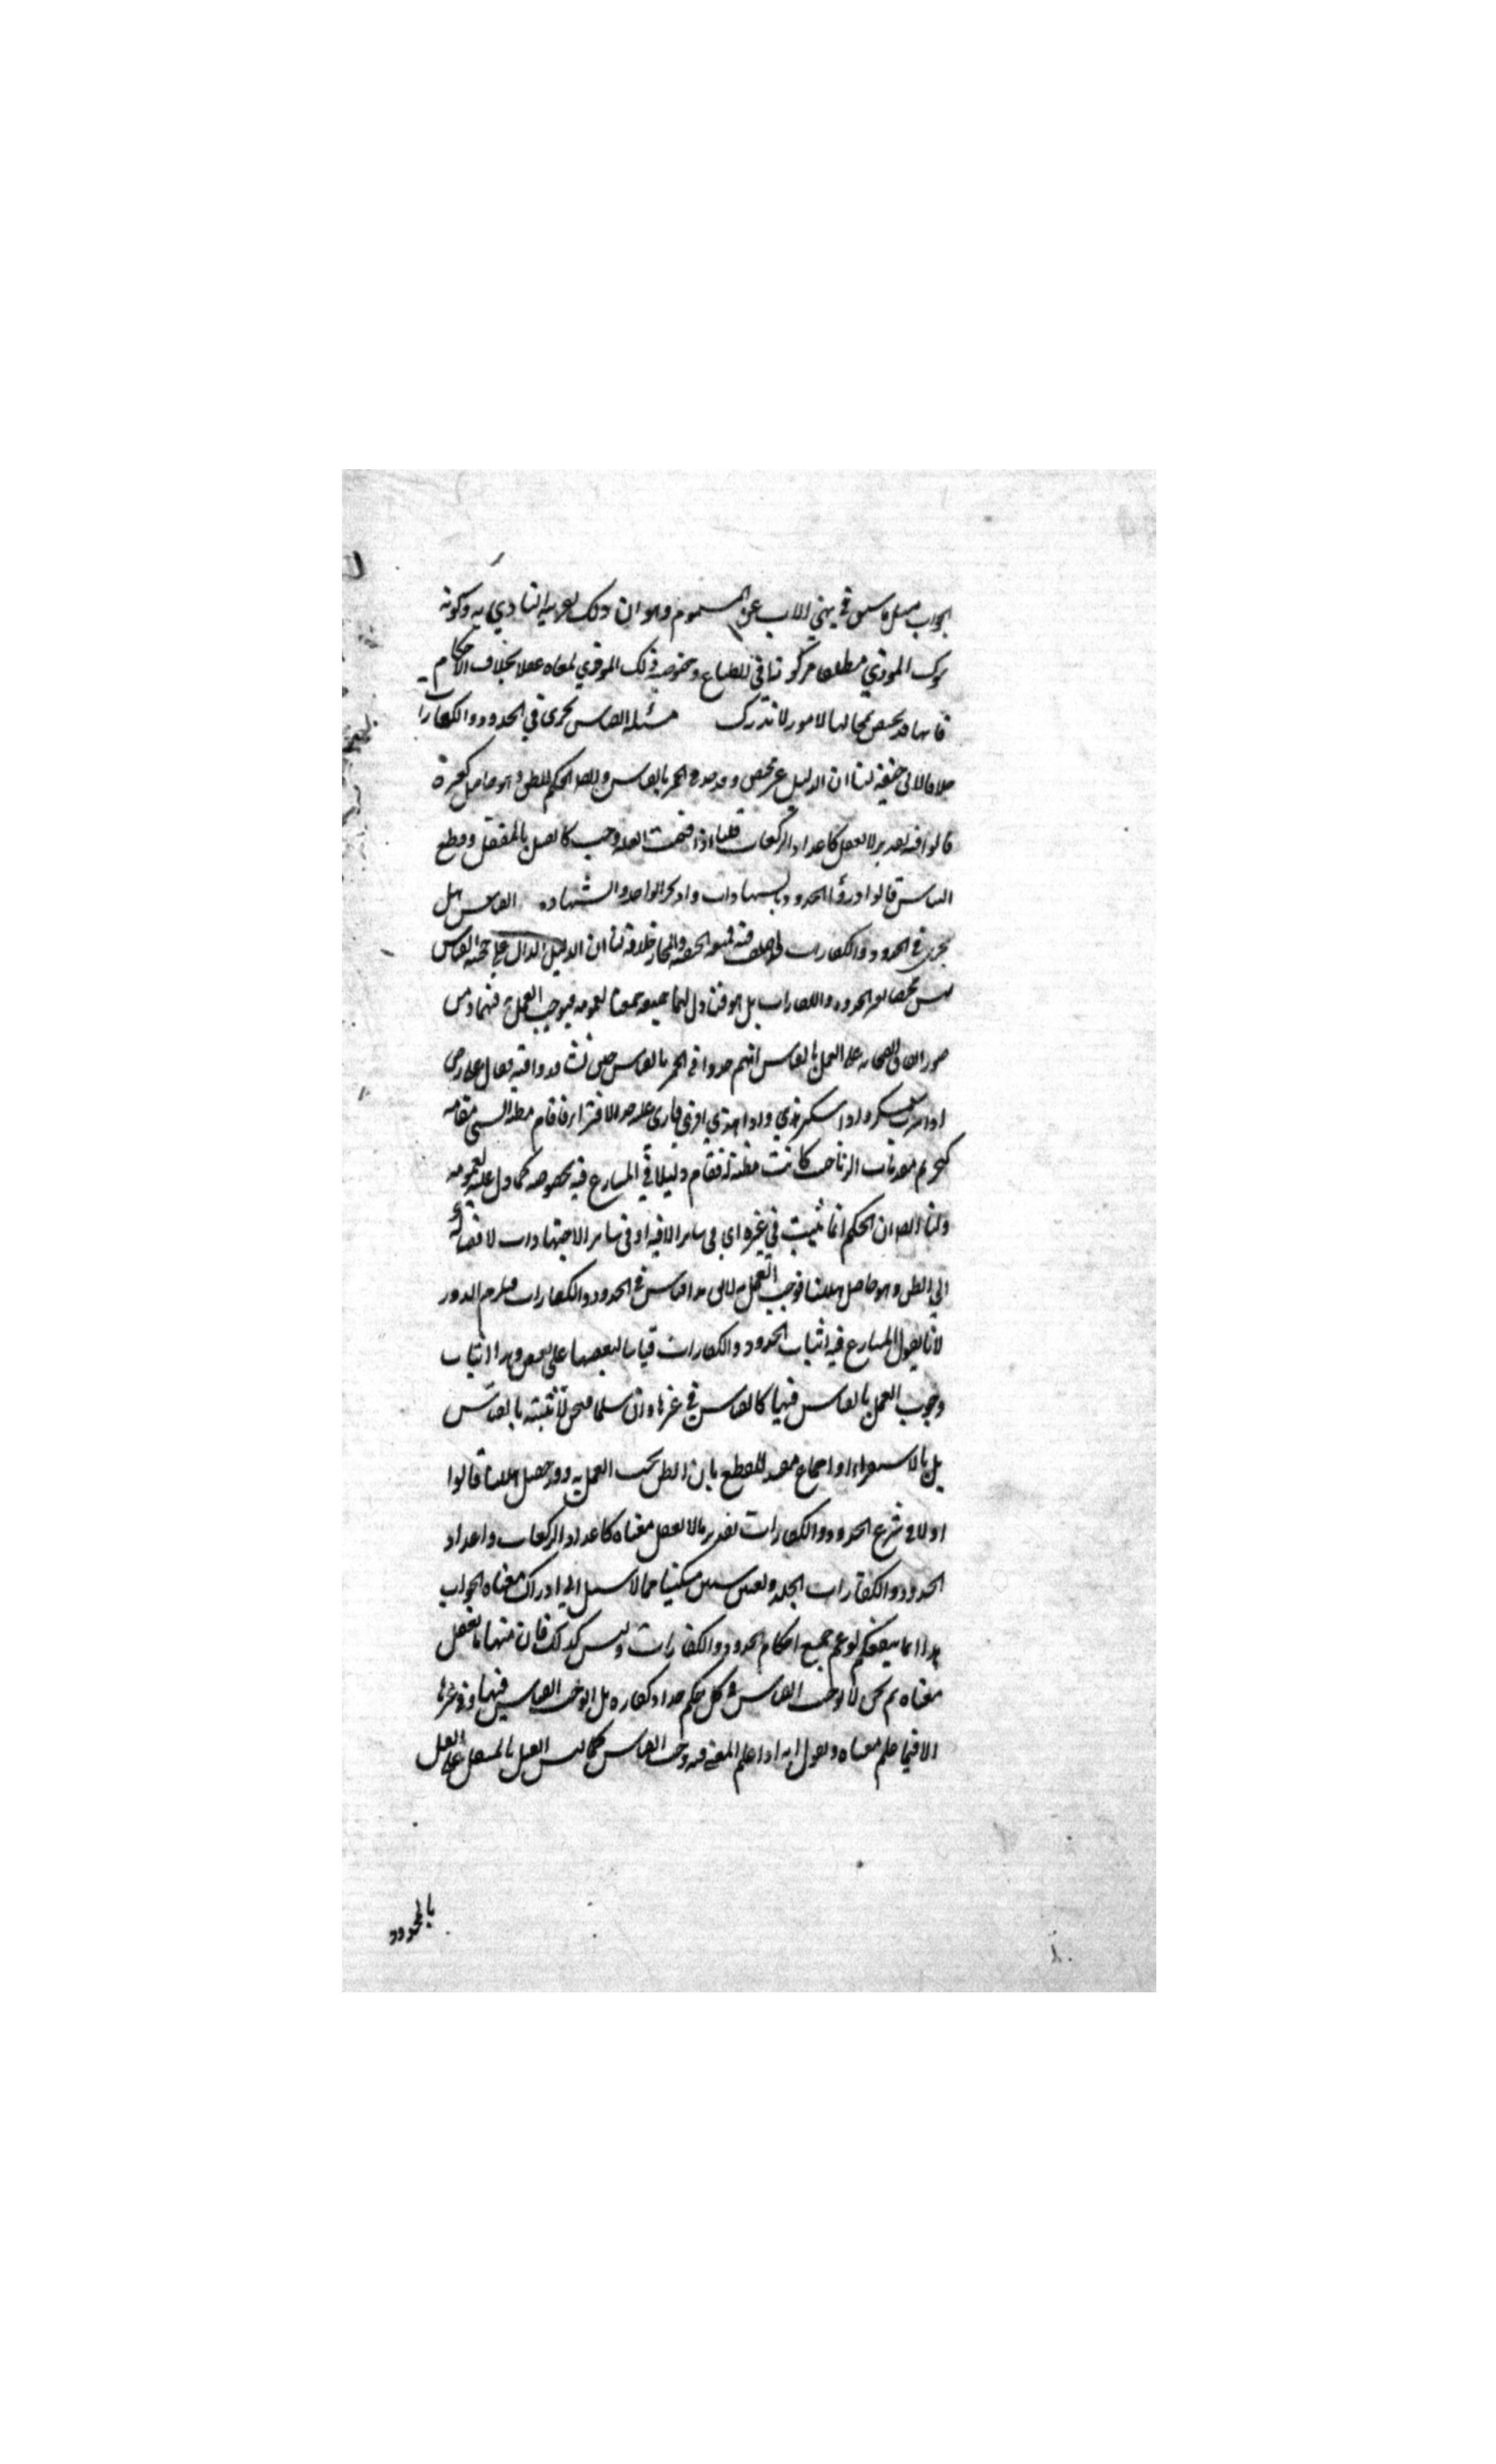 الجواب مثل ما سبق في نهي الاب عن المسموم وهو ان ذلك لقرينة التأذي به وكونه
ترك الموذي مطلقا مركوزا في الطباع وخصوصية ذلك الموذي ملغاه عقلا بخلاف الاحكام
فانها قد يختص بمحالها لامور لا تدرك مسئلة القياس يجري في الحدود والكفارات
خلافا لابي حنيفة لنا ان الدليل غير مختص وقد حد في الخمر بالقياس وايضا الحكم للظن وهو حاصل كغيره
قالوا فيه تقدير لا يعقل كاعداد الركعات قلنا اذا فهمت العلة وجب كالقتل بالمثقل وقطع
النباش قالوا ادرؤا الحدود بالشبهات ورد بخبر الواحد والشهادة القياس هل
يجري في الحدود والكفارات اختلف فيه فمنعه الحنفية والمختار خلافه لنا ان الدليل الدال على حجية القياس
ليس مختصا بغير الحدود والكفارات بل هو متناول لهما جميعا بعمومه فيوجب العمل به فيهما ومن
صور اتفاق الصحابة على العمل بالقياس انهم حدوا في الخمر بالقياس حين تشاوروا فيه فقال علي رض
اذا شرب سكر واذا سكر هذي واذا هذي افترى فارى عليه حد الافتراء فاقام مظنة الشي مقامه
كتحريم مقدمات الزنا حيث كانت مظنة له فقام دليلا في المتنازع فيه بخصوصه كما دل عليه بعمومه
ولنا ايضا ان الحكم انما يثبت في غيره اي في ساير الاقيسة او في ساير الاجتهادات لاقتضائه
الي الظن وهو حاصل ههنا فوجب العمل به لا يقال هذا قياس في الحدود والكفارات فيلزم الدور
لانا نقول المتنازع فيه اثبات الحدود والكفارات قياسا لبعضها على بعض وهذا اثبات
وجوب العمل بالقياس فيها كالقياس في غيرها وان سلما فنحن لا نثبته بالقياس
بل بالاستقراء او اجماع مفيد للقطع بان الظن يجب العمل به وقد حصل ههنا قالوا
اولا في شرع الحدود والكفارات تقدير ما لا يعقل معناه كاعداد الركعات واعداد
الحدود والكفارات الجلد وتعيين ستين مسكينا مما لا سبيل الي ادراك معناه الجواب
هذا انما ينفعكم لو عم جميع احكام الحدود والكفارات وليس كذلك فان منها ما يعقل
معناه ثم نحن لا نوجب القياس في كل حكم حد او كفارة بل انما نوجب القياس فيهما وفي غيرها
الا فيما علم معناه ونقول انه اذا علم المعنى فيه وجب القياس كما قيس القتل بالمثقل على القتل
بالمحدود